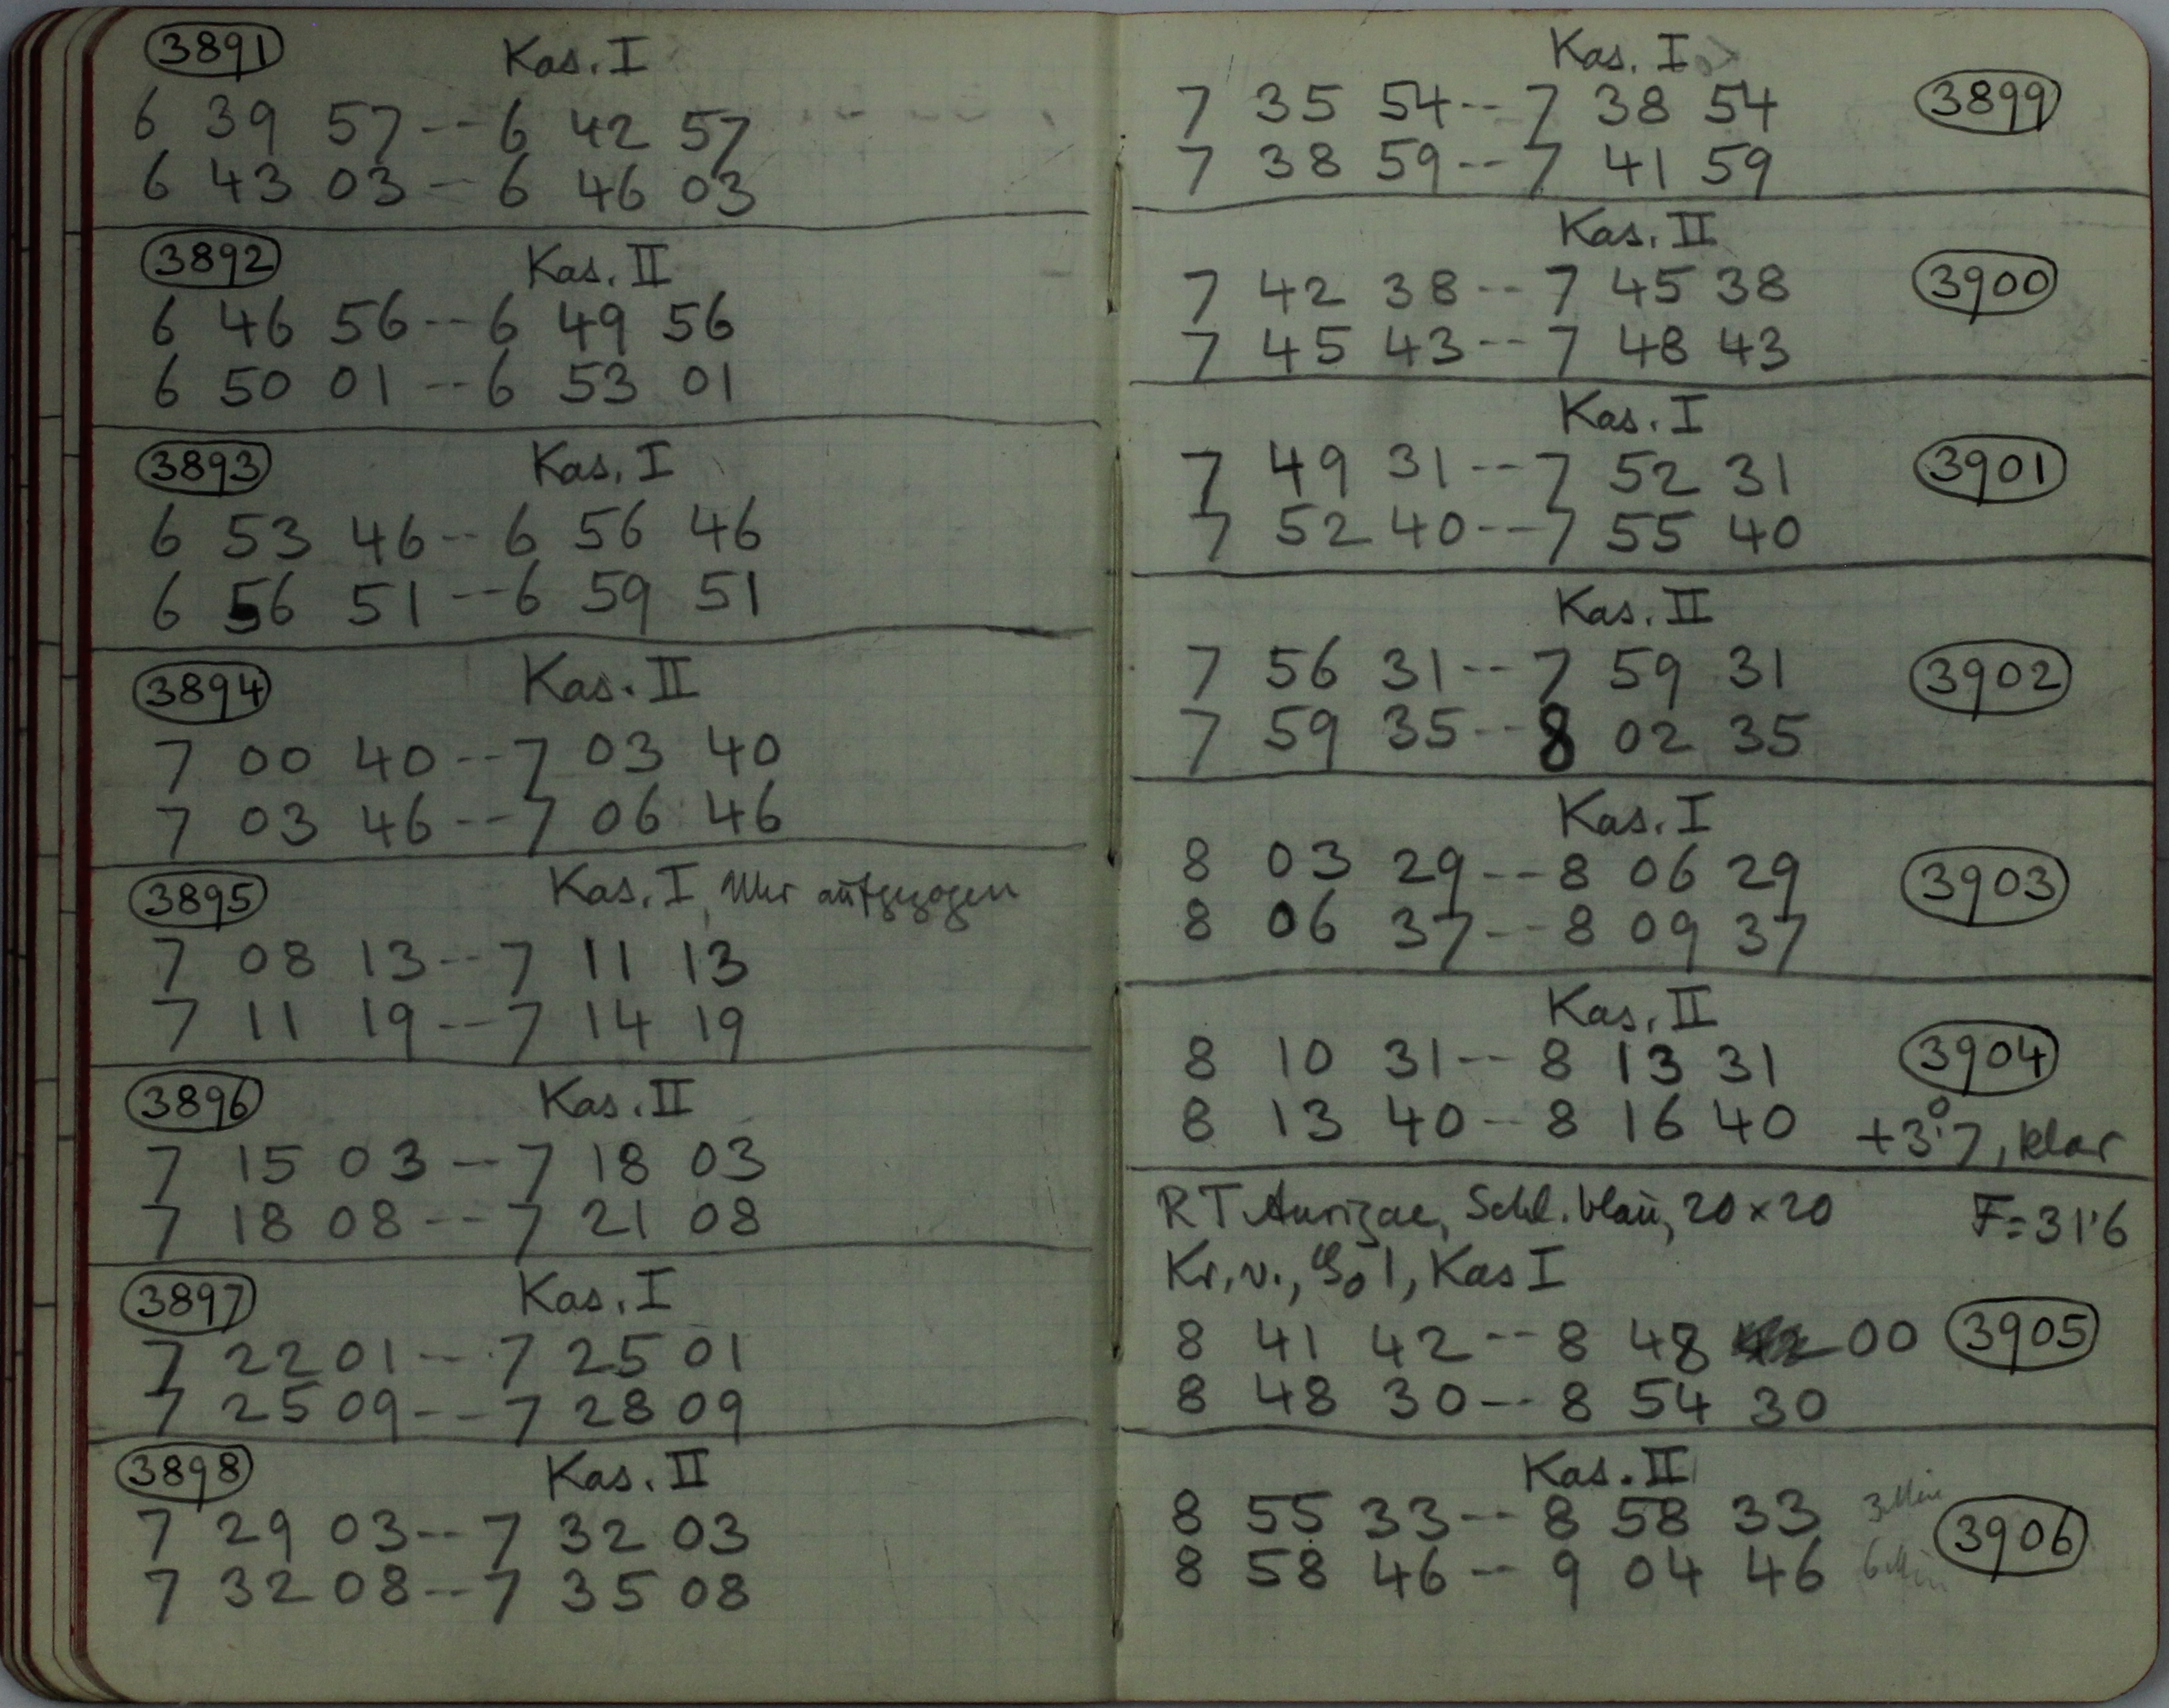 3891 Kas. I
6 39 57 -- 6 42 57
6 43 03 - 6 46 03
3892 Kas. II
6 46 56 -- 6 49 56
6 50 01 -- 6 53 01
3893 Kas. I
6 53 46 -- 6 56 46
6 56 51 -- 6 59 51
3894 Kas. II
7 00 40 -- 7 03 40
7 03 46 -- 7 06 46
3895 Kas. I, Uhr aufgezogen
7 08 13 -- 7 11 13
7 11 19 -- 7 14 19
3896 Kas. II
7 15 03 -- 7 18 03
7 18 08 -- 7 21 08
3897 Kas. I
7 22 01 -- 7 25 01
7 25 09 -- 7 28 09
3898 Kas. II
7 29 03 -- 7 32 03
7 32 08 -- 7 35 08
Kas. I
7 35 54 -- 7 38 54 3899
7 38 59 -- 7 41 59
Kas. II
7 42 38 -- 7 45 38 3900
7 45 43 -- 7 48 43
Kas. I
7 49 31 -- 7 52 31 3901
7 52 40 -- 7 55 40
Kas. II
7 56 31 -- 7 59 31 3902
7 59 35 -- 8 02 35
Kas. I
8 03 29 -- 8 06 29 3903
8 06 37 -- 8 09 37
Kas. II
8 10 31 -- 8 13 31 3904
8 13 40 -- 8 16 40 +3°.7, klar
RT Aurigae, Schl. blau, 20 × 20 F = 31'6
Kr. v., 1, Kas I
8 41 42 -- 8 48 00 3905
8 48 30 -- 8 54 30
Kas. II
8 55 33 -- 8 58 33 3 Min 3906
8 58 46 -- 9 04 46 6 Min